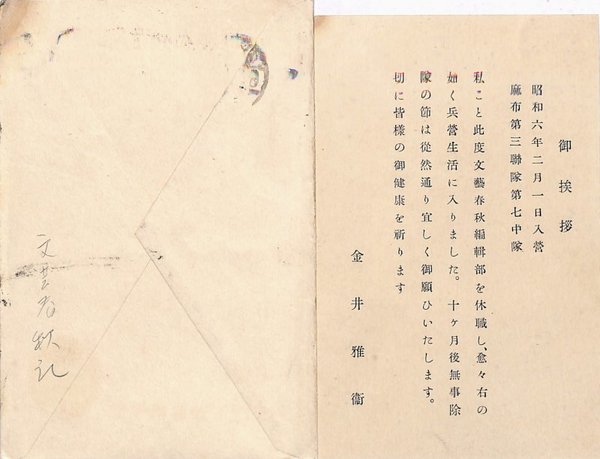 御挨拶
昭和六年二月一日入營
麻布第三聯隊第七中隊
私こと此度文藝春秋編輯部を休職し、愈々右の
如く兵營生活に入りました。十ヶ月後無事除
隊の節は從然通り宜しく御願ひいたします。
切に皆樣の御健康を祈ります
金井雅衞
文芸春秋記